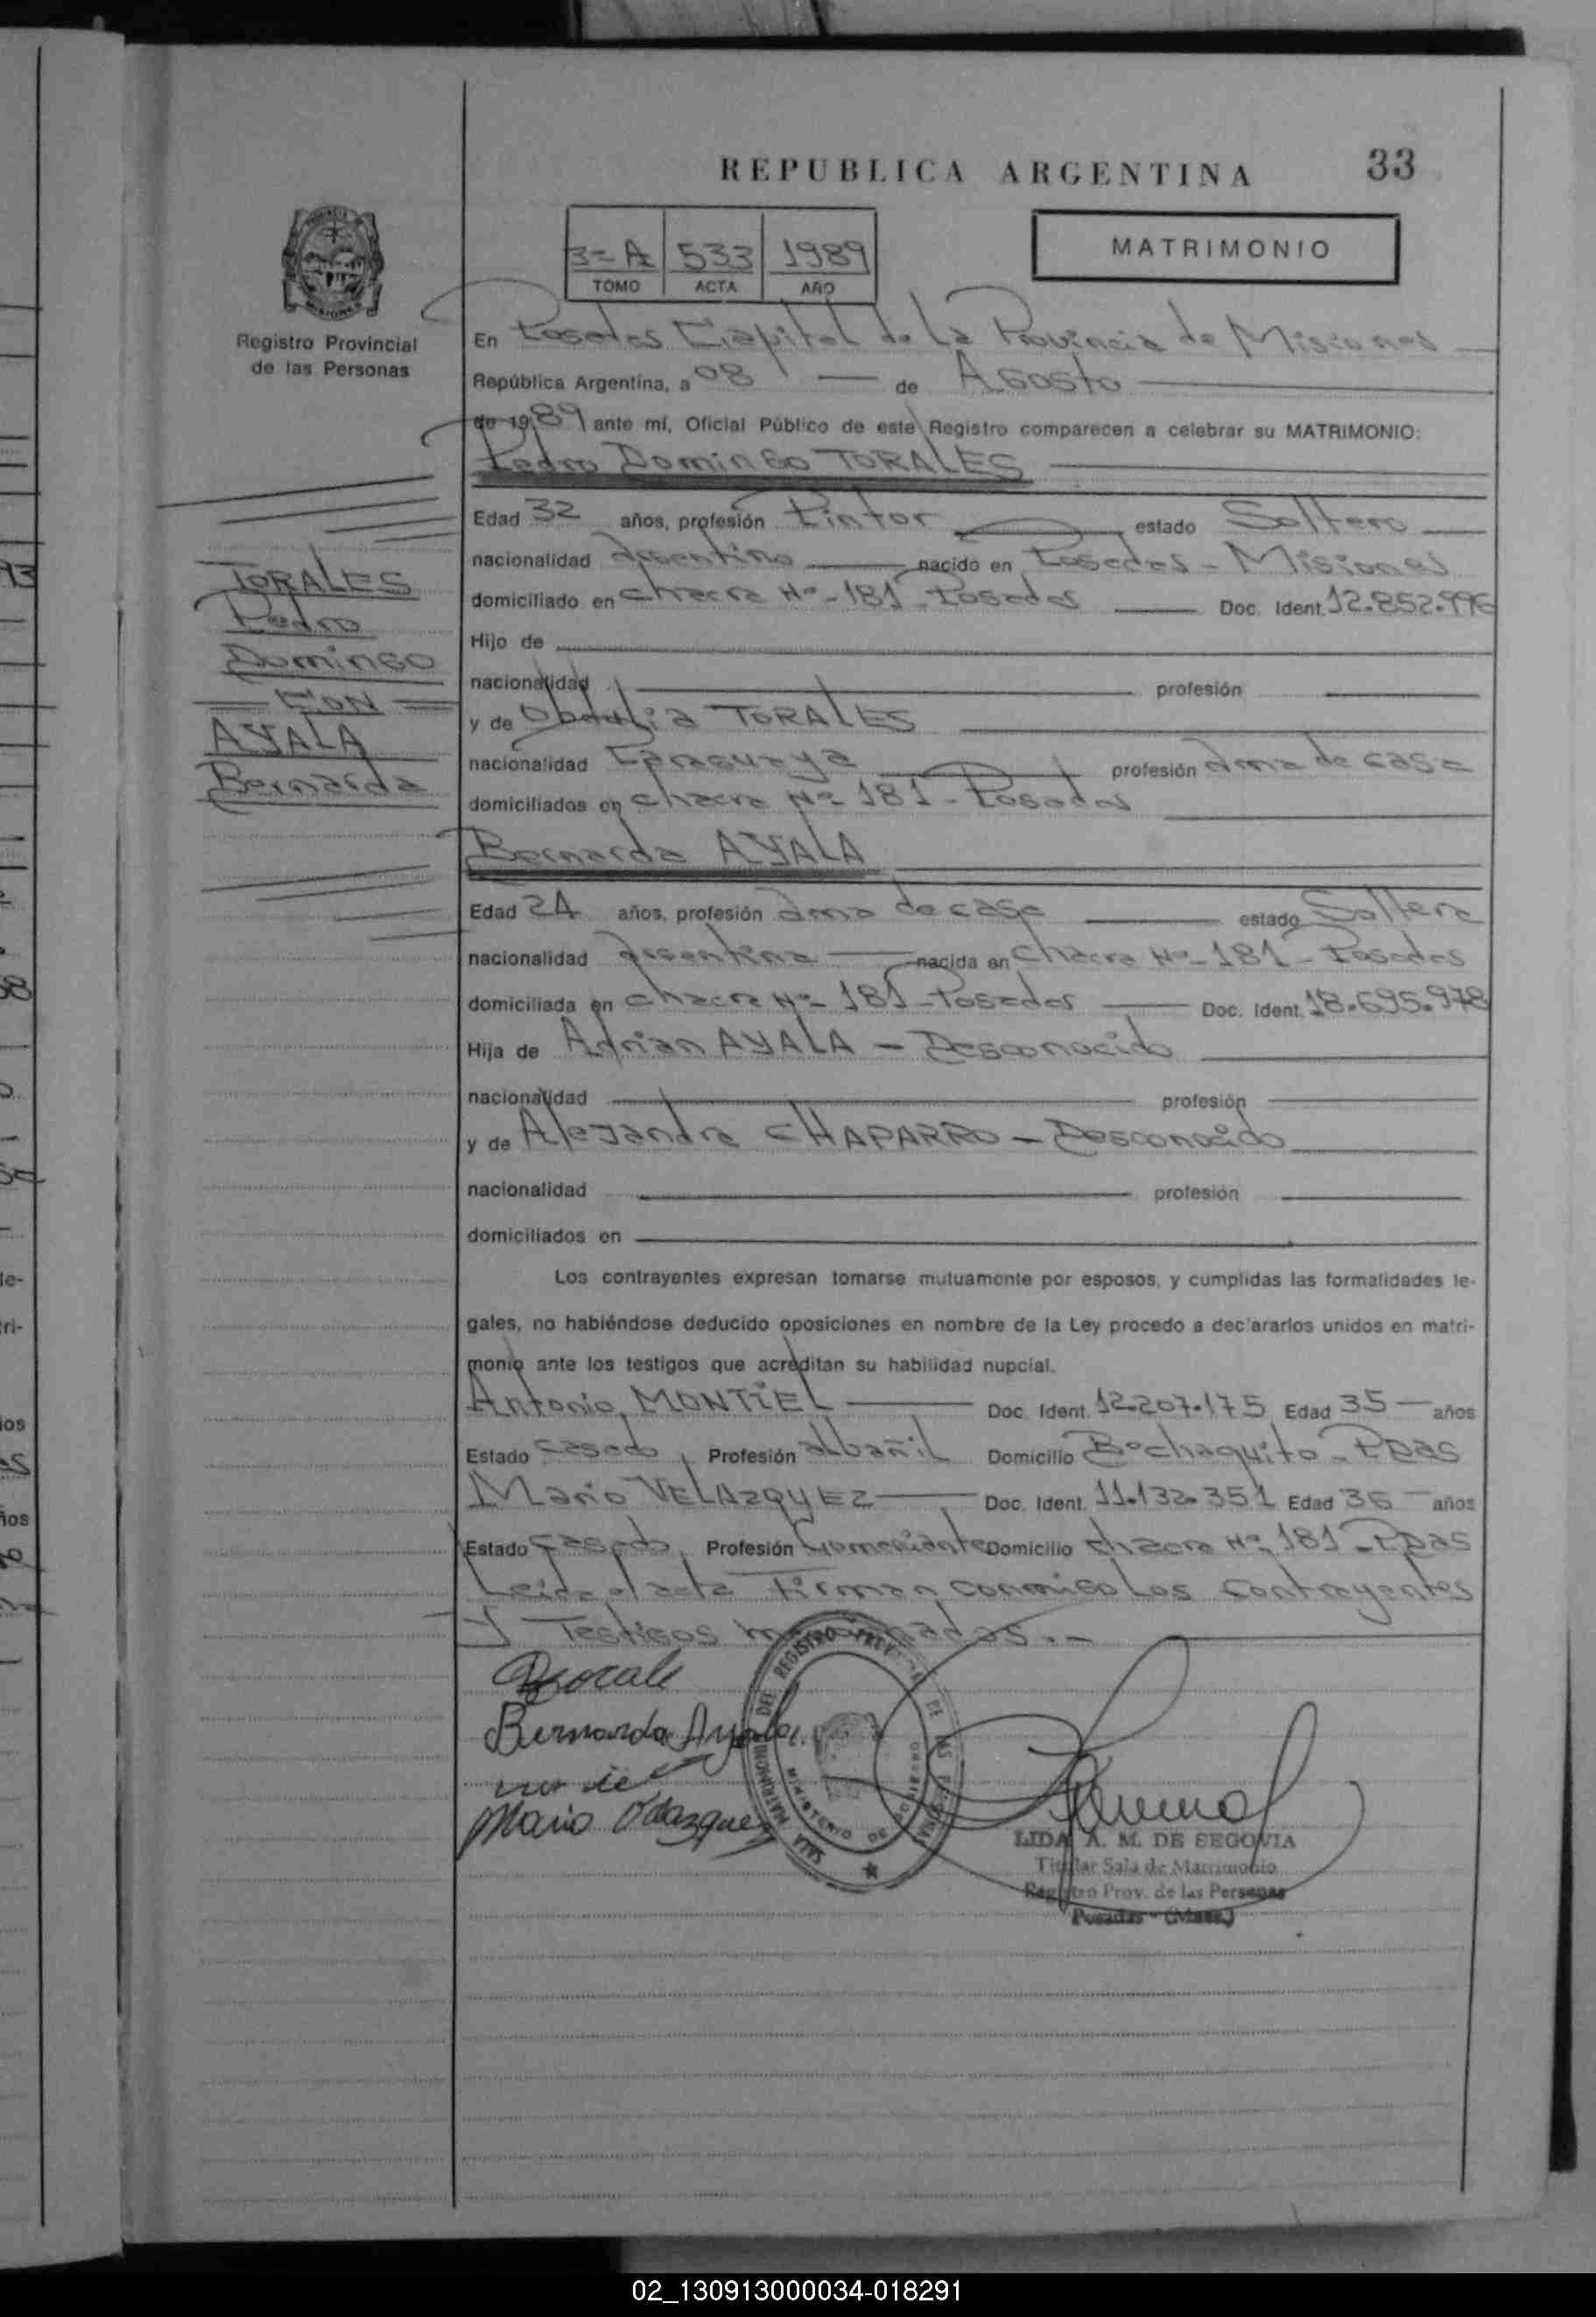 REPUBLICA ARGENTINA 33
MATRIMONIO
3=A 533 1989
TOMO ACTA AÑO
Registro Provincial
de las Personas
En Posadas Capital de La Provincia de Misiones
República Argentina, a 08 de Agosto
de 1989 ante mí, Oficial Público de este Registro comparecen a celebrar su MATRIMONIO:
Pedro Domingo TORALES
Edad 32 años, profesión Pintor estado Soltero
nacionalidad Argentino nacido en Posadas - Misiones
domiciliado en chacra Nº - 181 Posadas Doc. Ident. 12.852.996
Hijo de
nacionalidad profesión
y de Obdulia TORALES
nacionalidad Paraguaya profesión ama de casa
domiciliados en chacra Nº 181 - Posadas
TORALES
Pedro
Domingo
= CON =
AYALA
Bernarda
Bernarda AYALA
Edad 24 años, profesión ama de casa estado Soltera
nacionalidad Argentina nacida en Chacra Nº - 181 - Posadas
domiciliada en chacra Nº - 181 - Posadas Doc. Ident. 18.695.978
Hija de Adrian AYALA - Desconocido
nacionalidad profesión
y de Alejandra CHAPARRO - Desconocido
nacionalidad profesión
domiciliados en
Los contrayentes expresan tomarse mutuamente por esposos, y cumplidas las formalidades le-
gales, no habiéndose deducido oposiciones en nombre de la Ley procedo a declararlos unidos en matri-
monio ante los testigos que acreditan su habilidad nupcial.
Antonio MONTIEL Doc. Ident. 12.207.175 Edad 35 años
Estado casado Profesión albañil Domicilio Bº chaquito - Pdas
Mario VELAZQUEZ Doc. Ident. 11.132.351 Edad 36 años
Estado casado Profesión Comerciante Domicilio chacra Nº 181 - Pdas
Leida el acta Firman conmigo Los Contrayentes
Y Testigos mencionados. -
Bernarda Ayala
Mario Velazquez
SALA MATRIMONIO DEL REGISTRO PROV. DE LAS PERSONAS
MINISTERIO DE GOBIERNO
LIDA A. M. DE SEGOVIA
Titular Sala de Matrimonio
Registro Prov. de las Personas
Posadas - (Mnes.)
02_130913000034-018291